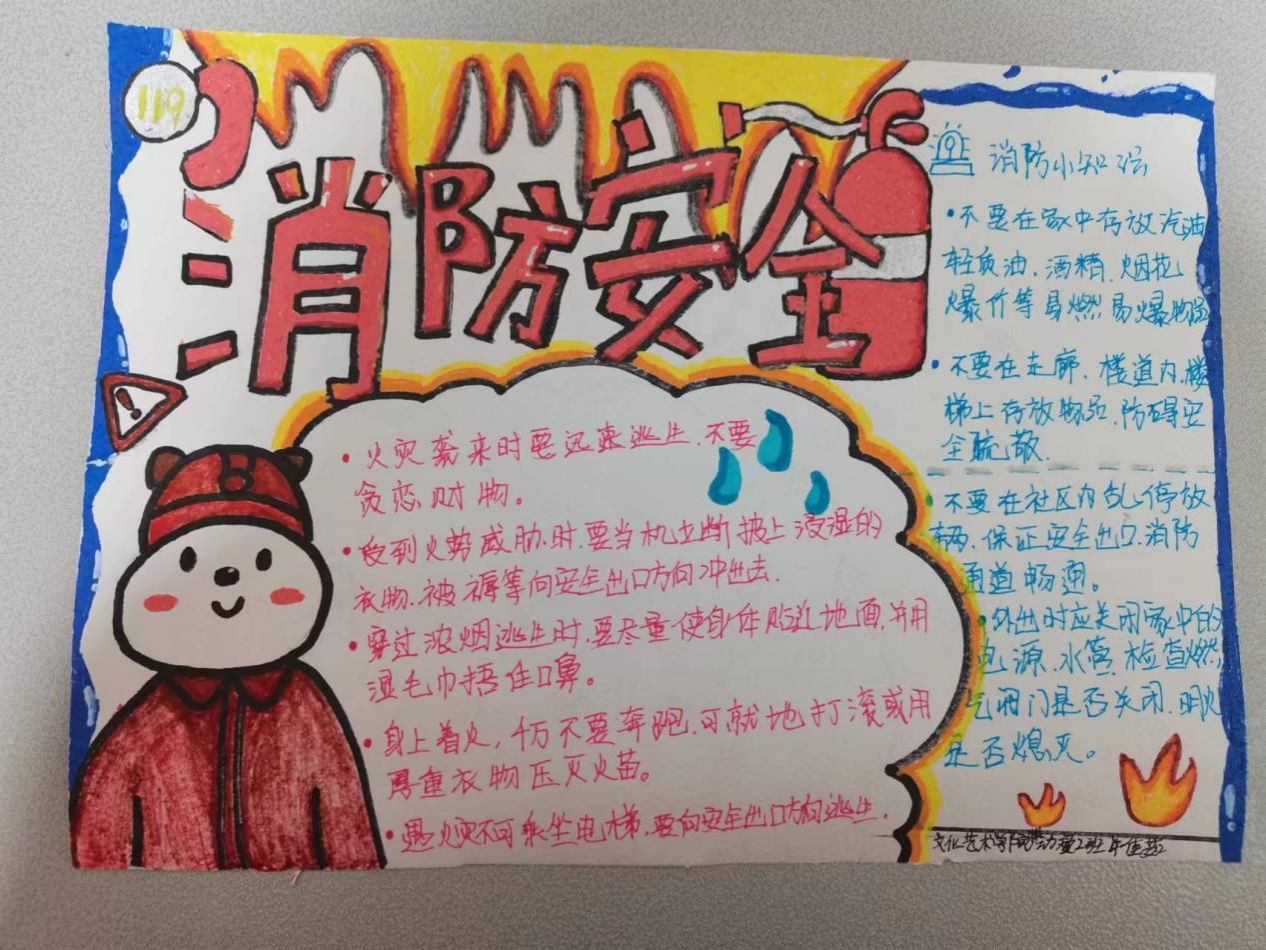 119
消防安全
火灾袭来时要迅速逃生.不要
贪恋财物。
受到火势威胁时.要当机立断披上浸湿的
衣物.被褥等向安全出口方向冲出去.
穿过浓烟逃生时.要尽量使身体贴近地面.并用
湿毛巾捂住口鼻。
身上着火,千万不要奔跑.可就地打滚或用
厚重衣物压灭火苗。
遇火灾不可乘坐电梯.要向安全出口方向逃生.
消防小知识
不要在家中存放汽油
轻质油.酒精.烟花
爆竹等易燃易爆物品
不要在走廊.楼道内.楼
梯上存放物品.防碍安
全疏散.
不要在社区内乱停放
车辆.保证安全出口.消防
通道畅通。
外出时应关闭家中的
电源.水管.检查燃
气阀门是否关闭.明火
是否熄灭。
文化艺术学院